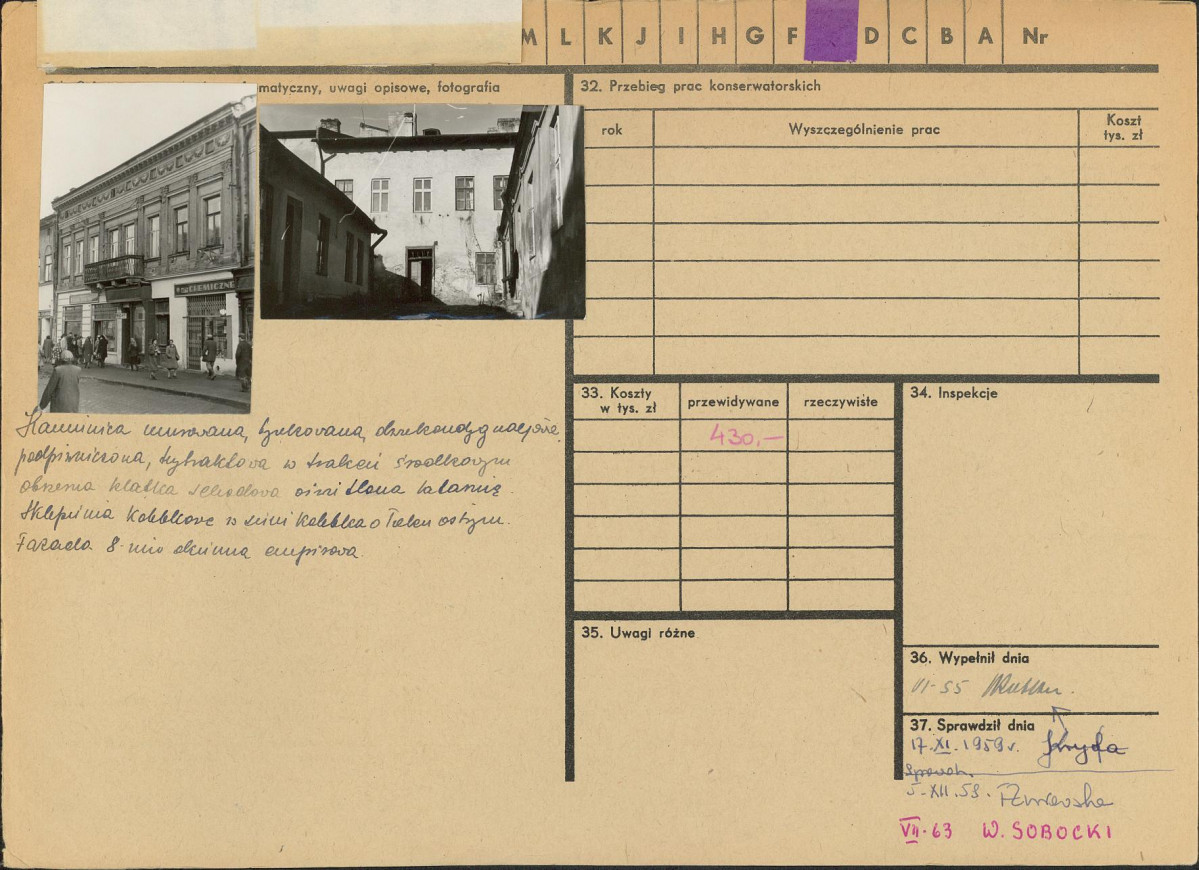 M L K J I H G F D C B A Nr
matyczny, uwagi opisowe, fotografia
CHEMICZNE
Kamienica murowana, tynkowana, dwukondygnacjowa
podpiwniczona, trytraktowa w trakcie środkowym
obszerna klatka schodowa oświetlona latarnią.
Sklepienia kolebkowe w sieni kolebka o łuku ostrym.
Fasada 8-mio osiowa empirowa.
32. Przebieg prac konserwatorskich
rok Wyszczególnienie prac Koszt
tys. zł
33. Koszty
w tys. zł przewidywane rzeczywiste
430,—
34. Inspekcje
35. Uwagi różne
36. Wypełnił dnia
VI-55
37. Sprawdził dnia
17.XI.1959 r.
5-XII.59.
VII.63 W. SOBOCKI